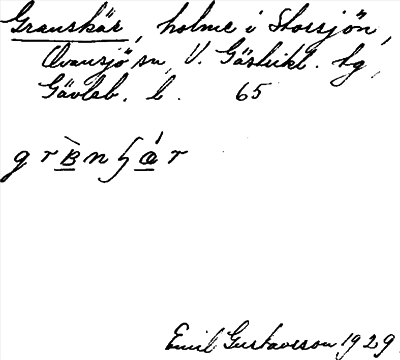 Granskär, holme i Storsjön,
Ovansjö sn, V. Gästrikl. tg,
Gävleb. l. 65
Emil Gustavsson 1929